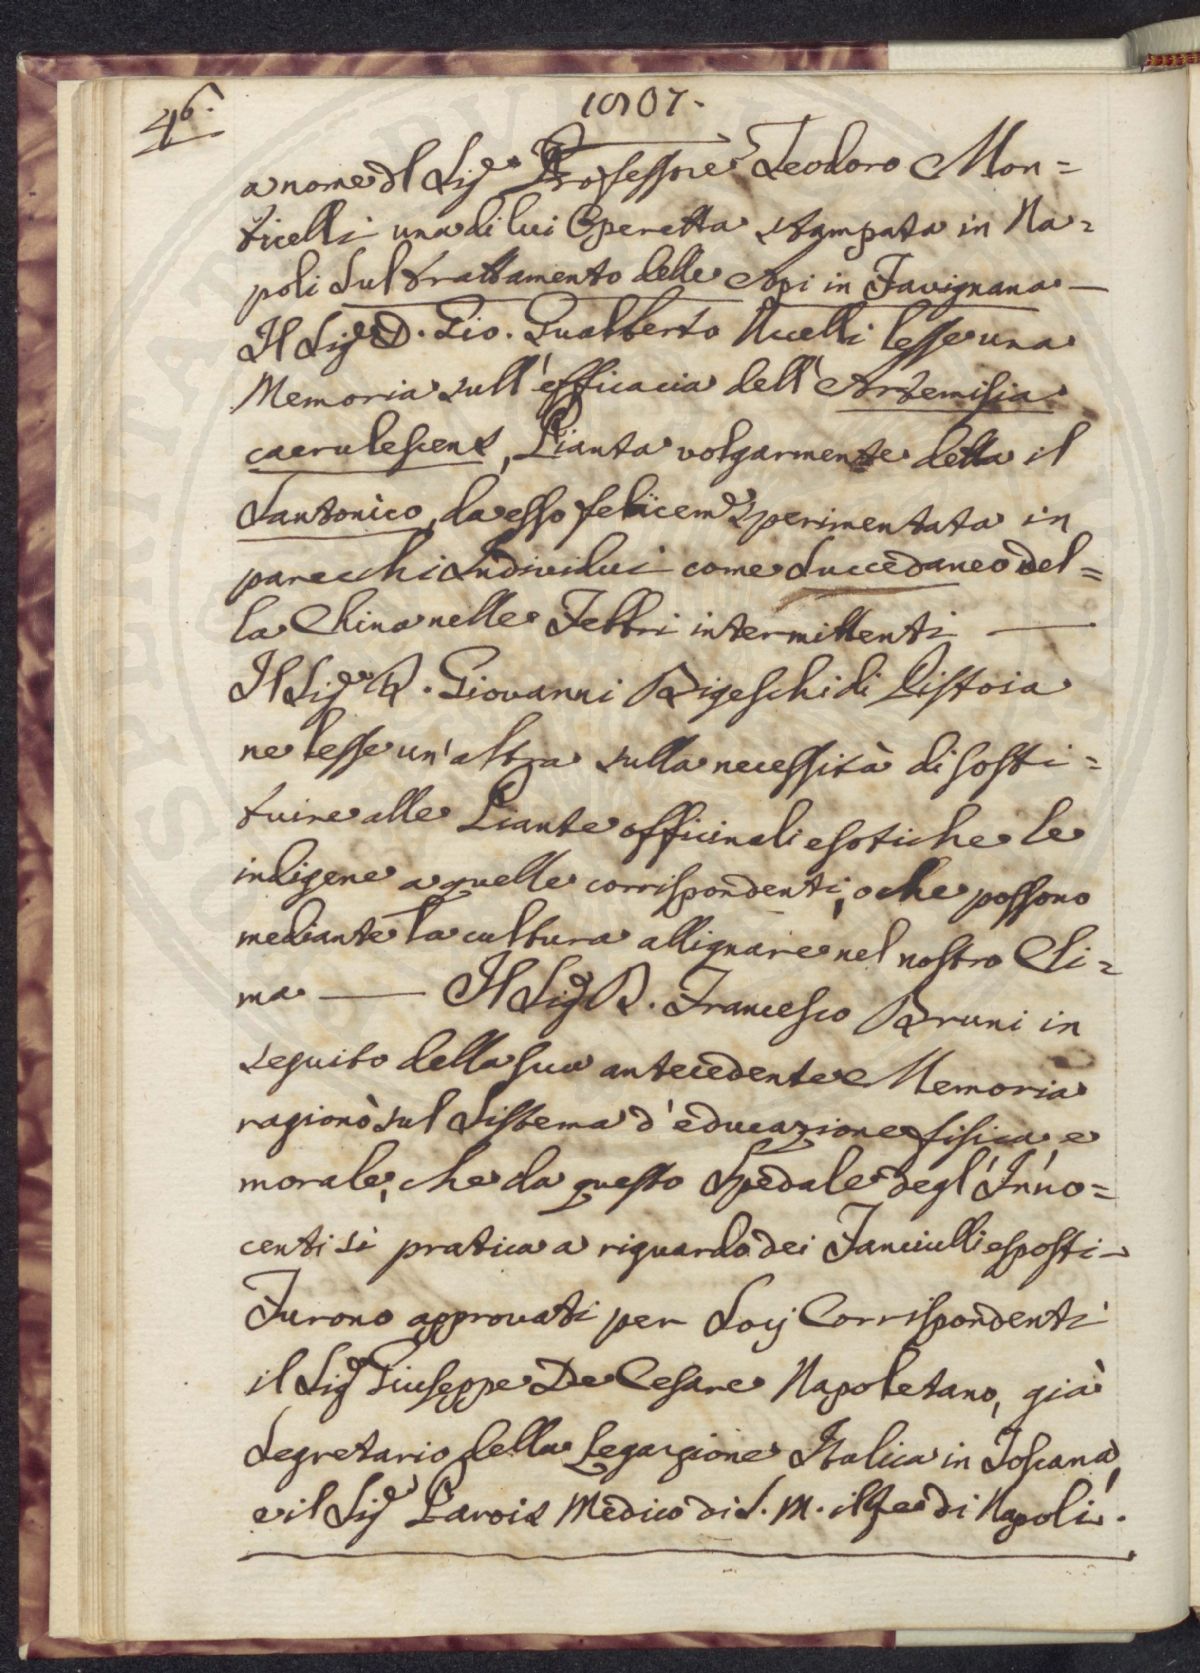 46.
1807.
a nome dl Sig.e Professore Teodoro Mon=
ticelli una di lui Operetta stampata in Na=
poli sul trattamento delle Api in Favignana —
Il Sig.e D. Gio. Gualberto Uccelli lesse una
Memoria sull'efficacia dell'Artemisia
caerulescens, Pianta volgarmente detta il
Santonico, da esso felicem.e sperimentata in
parecchi Individui come succedaneo del=
la China nelle Febbri intermittenti —
Il Sig.e D. Giovanni Bigeschi di Pistoia
ne lesse un'altra sulla necessità di sosti=
tuire alle Piante officinali esotiche le
indigene a quelle corrispondenti, o che possono
mediante la cultura allignare nel nostro Cli=
ma — Il Sig.e D. Francesco Bruni in
seguito della sua antecedente Memoria
ragionò sul Sistema d'educazione fisica, e
morale, che da questo Spedale degl'Inno=
centi si pratica a riguardo dei Fanciulli esposti —
Furono approvati per Socij Corrispondenti
il Sig.e Giuseppe De Cesare Napoletano, già
Segretario della Legazione Italica in Toscana,
e il Sig.e Parois Medico di S. M. il Re di Napoli.